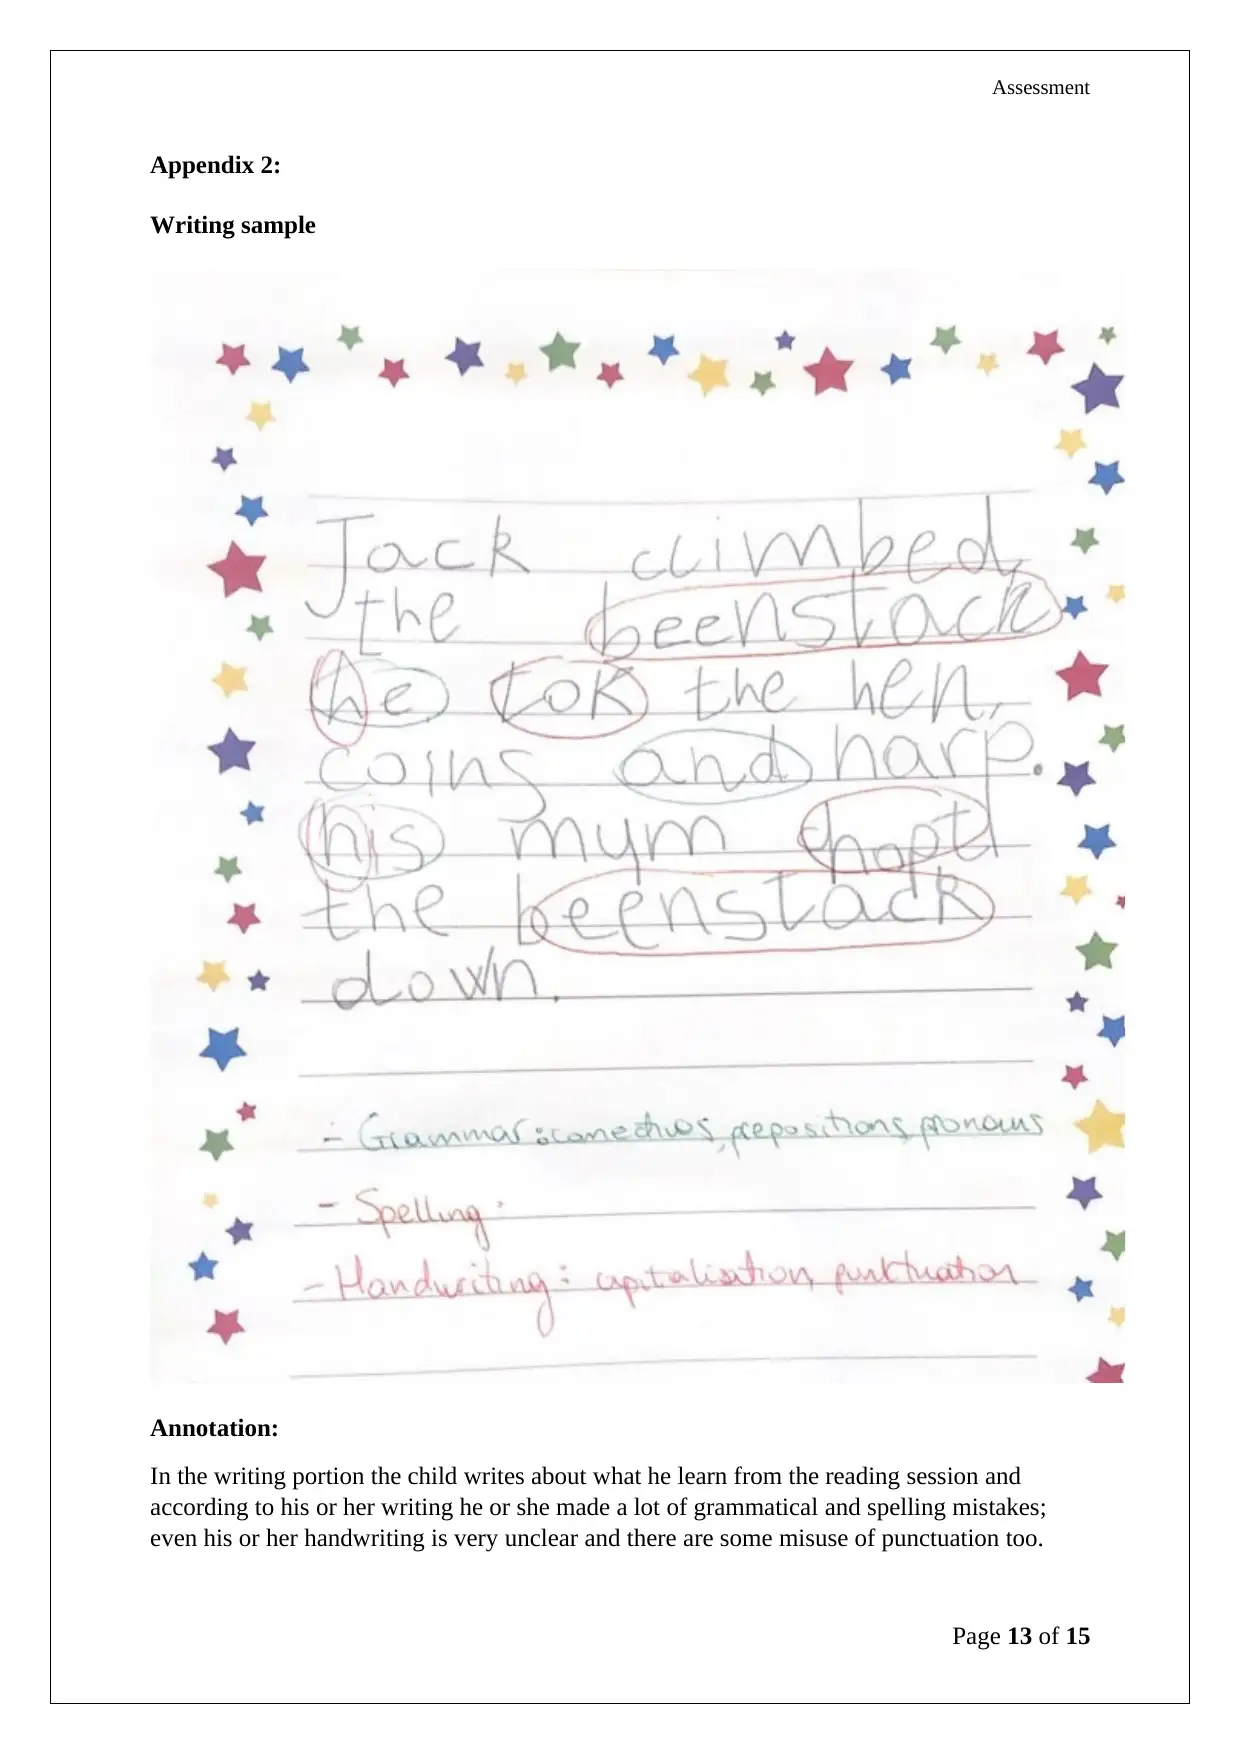 Assessment
Appendix 2:
Writing sample
Jack climbed
the beenstack
he tok the hen,
coins and harp.
his mym chopt
the beenstack
down.
- Grammar: conectives, prepositions, pronouns
- Spelling:
- Handwriting: capitalisation, punktuation
Annotation:
In the writing portion the child writes about what he learn from the reading session and
according to his or her writing he or she made a lot of grammatical and spelling mistakes;
even his or her handwriting is very unclear and there are some misuse of punctuation too.
Page 13 of 15